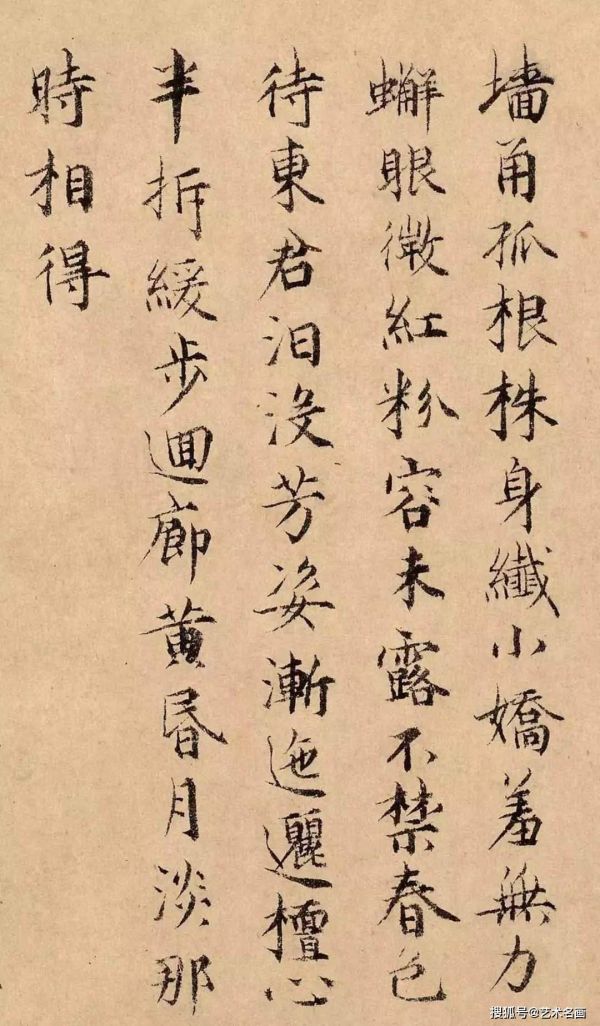 墻角孤根株身纖小嬌羞無力
蠏眼微紅粉容未露不禁春色
待東君汩没芳姿漸迤邐檀心
半拆緩步迴廊黄昏月淡那
時相得
搜狐号@艺术名画